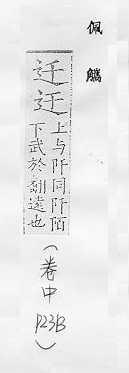 佩觿
迁迂
上与阡同阡陌
下武於翻遠也
(卷中 P23B)